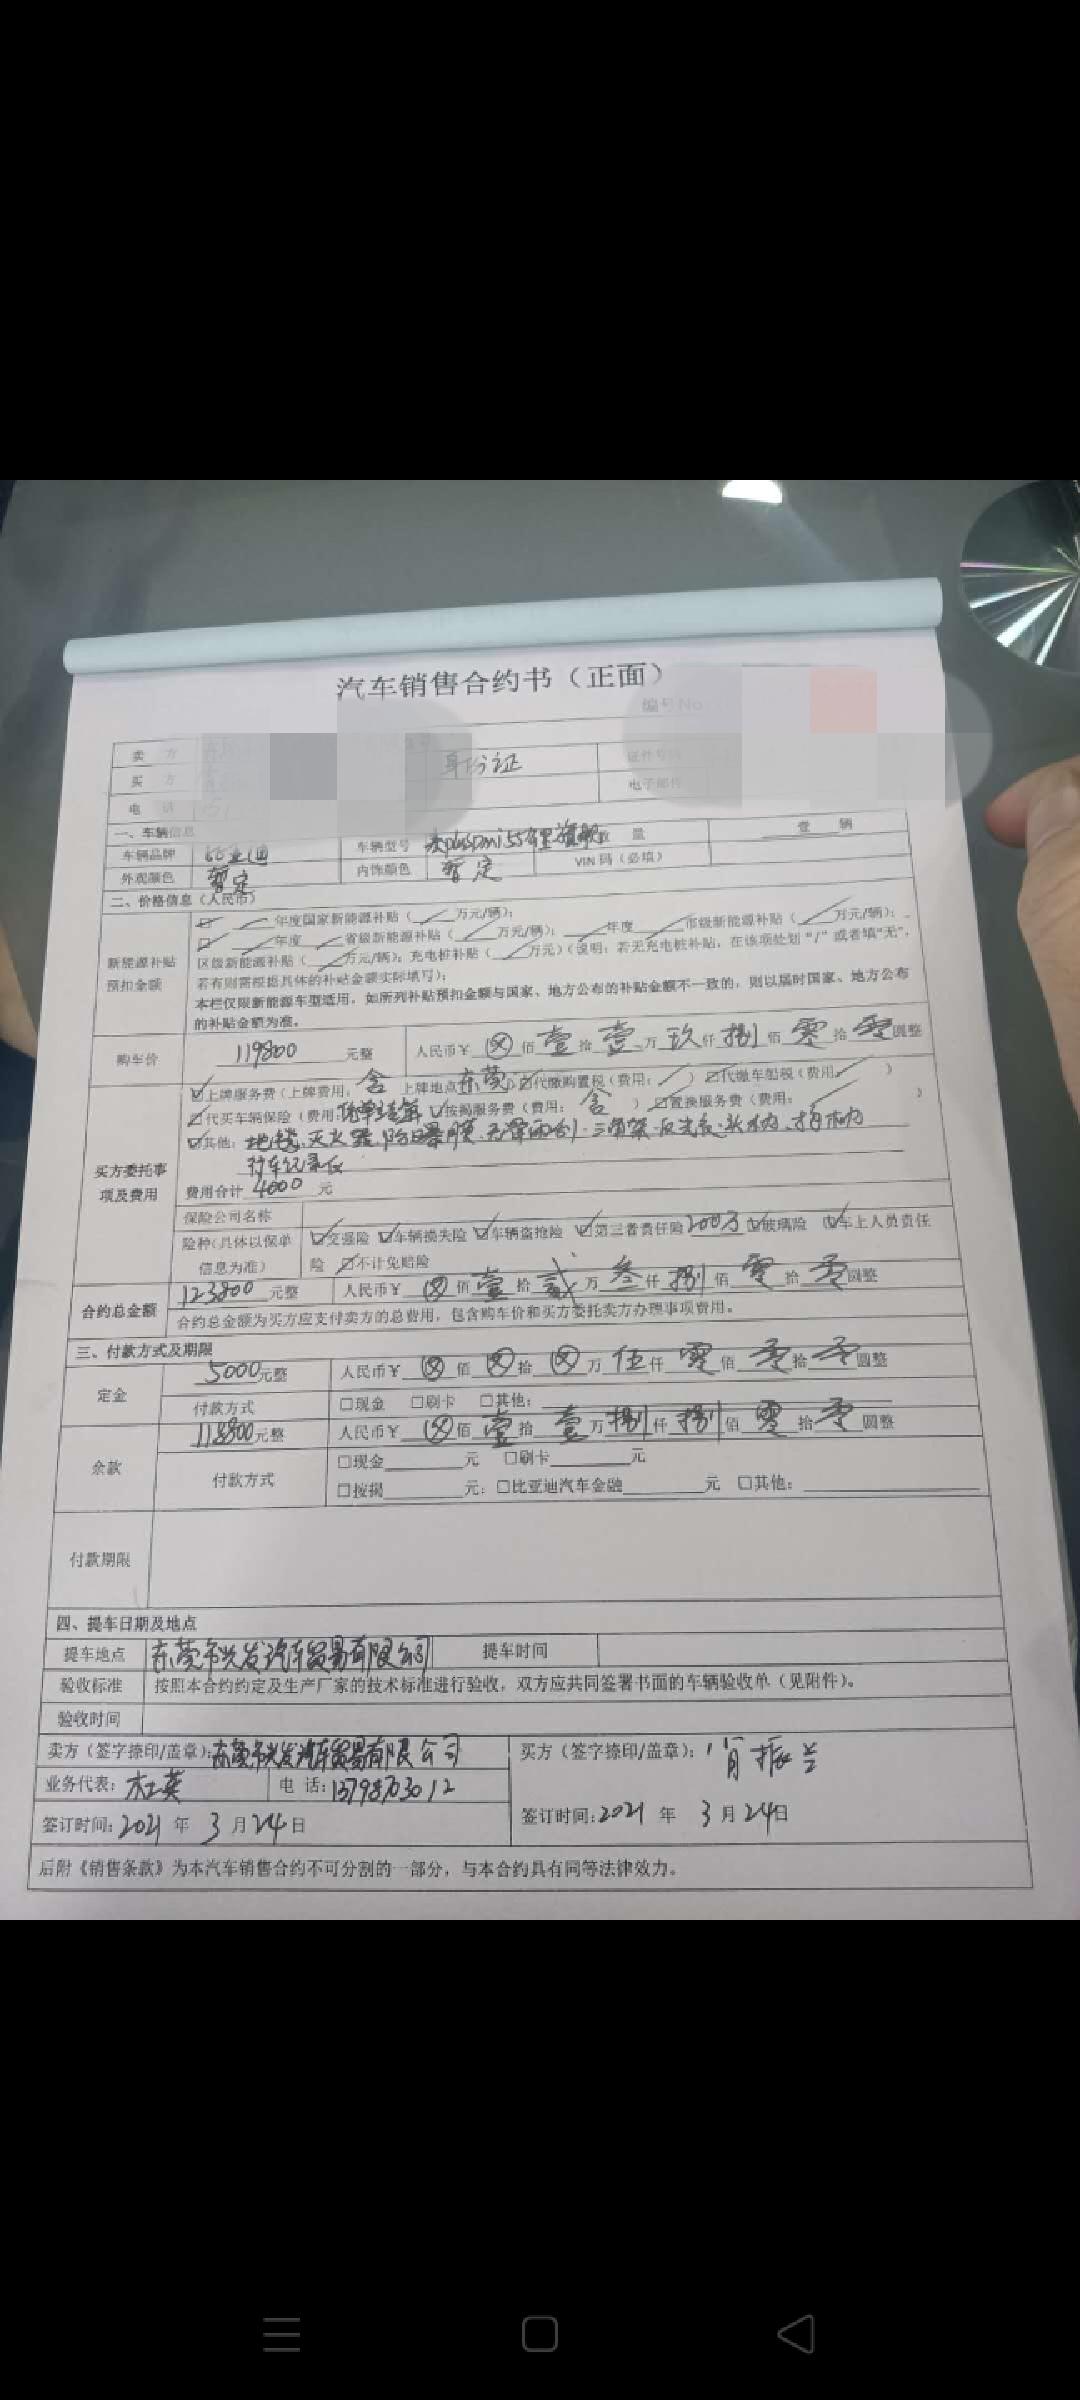 汽车销售合约书（正面）
编号No.
卖 方
买 方 身份证 证件号码
电 话 电子邮件
一、车辆信息
车辆品牌 比亚迪 车辆型号 秦plusDmi55公里旗舰 数 量 壹 辆
外观颜色 暂定 内饰颜色 暂定 VIN 码（必填）
二、价格信息（人民币）
新能源补贴预扣金额
年度国家新能源补贴（ / 万元/辆）；
年度 / 省级新能源补贴（ / 万元/辆）； 年度 / 市级新能源补贴（ / 万元/辆）；
区级新能源补贴（ / 万元/辆）；充电桩补贴（ / 万元）（说明：若无充电桩补贴，在该项处划“/”或者填“无”，
若有则需根据具体的补贴金额实际填写）；
本栏仅限新能源车型适用，如所列补贴预扣金额与国家、地方公布的补贴金额不一致的，则以届时国家、地方公布
的补贴金额为准。
购车价 119800 元整 人民币￥ ⊗ 佰 壹 拾 壹 万 玖 仟 捌 佰 零 拾 零 圆整
买方委托事项及费用
☑上牌服务费（上牌费用： 含 上牌地点 东莞 ）☑代缴购置税（费用： / ） ☑代缴车船税（费用 / ）
☑代买车辆保险（费用： ☑按揭服务费（费用： 含 ） ☑置换服务费（费用： / ）
☑其他：地毯、灭火器、防爆膜、三角架、反光衣
行车记录仪
费用合计 4000 元
保险公司名称
险种（具体以保单信息为准） ☑交强险 ☑车辆损失险 ☑车辆盗抢险 ☑第三者责任险200万 ☑玻璃险 ☑车上人员责任
险 ☑不计免赔险
合约总金额 123800 元整 人民币￥ ⊗ 佰 壹 拾 贰 万 叁 仟 捌 佰 零 拾 零 圆整
合约总金额为买方应支付卖方的总费用，包含购车价和买方委托卖方办理事项费用。
三、付款方式及期限
定金 5000元整 人民币￥ ⊗ 佰 ⊗ 拾 ⊗ 万 伍 仟 零 佰 零 拾 零 圆整
付款方式 □现金 □刷卡 □其他：
余款 118800元整 人民币￥ ⊗ 佰 壹 拾 壹 万 捌 仟 捌 佰 零 拾 零 圆整
付款方式 □现金 元 □刷卡 元
□按揭 元；□比亚迪汽车金融 元 □其他：
付款期限
四、提车日期及地点
提车地点 东莞市兴发汽车贸易有限公司 提车时间
验收标准 按照本合约约定及生产厂家的技术标准进行验收，双方应共同签署书面的车辆验收单（见附件）。
验收时间
卖方（签字捺印/盖章）：东莞市兴发汽车贸易有限公司 买方（签字捺印/盖章）：肖振兰
业务代表：杜英 电 话：13798703012
签订时间：2021 年 3 月 24 日 签订时间：2021 年 3 月 24日
后附《销售条款》为本汽车销售合约不可分割的一部分，与本合约具有同等法律效力。